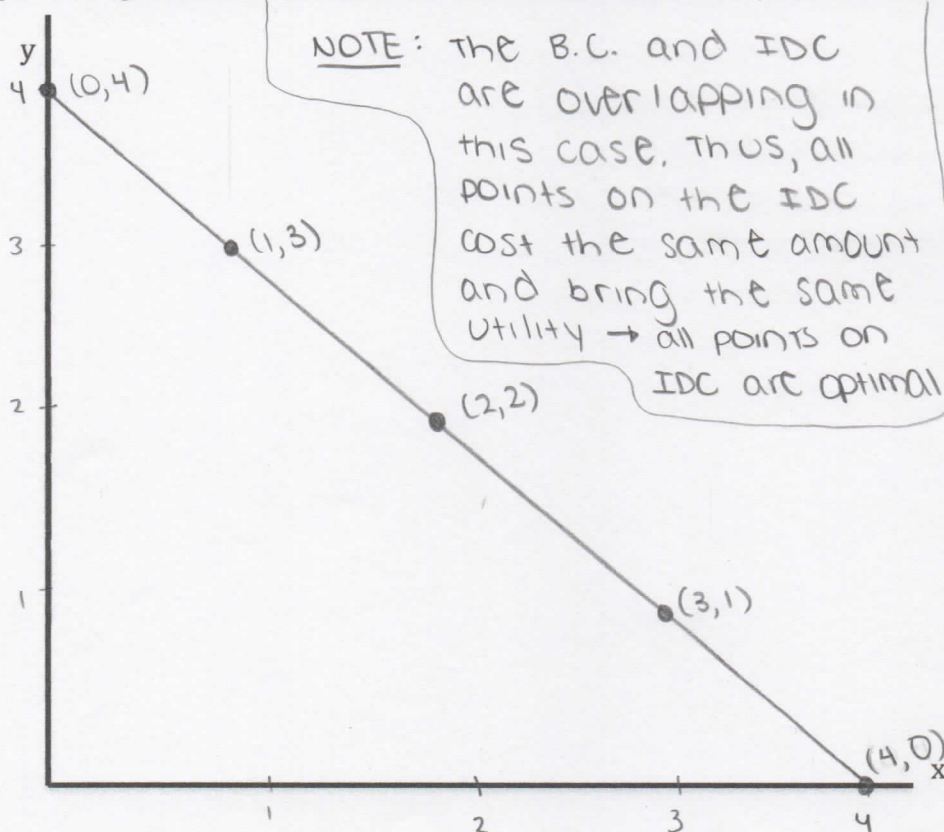 NOTE: The B.C. and IDC
are overlapping in
this case. Thus, all
points on the IDC
cost the same amount
and bring the same
utility → all points on
IDC are optimal
y
4
(0,4)
3
(1,3)
2
(2,2)
1
(3,1)
(4,0)
x
1
2
3
4